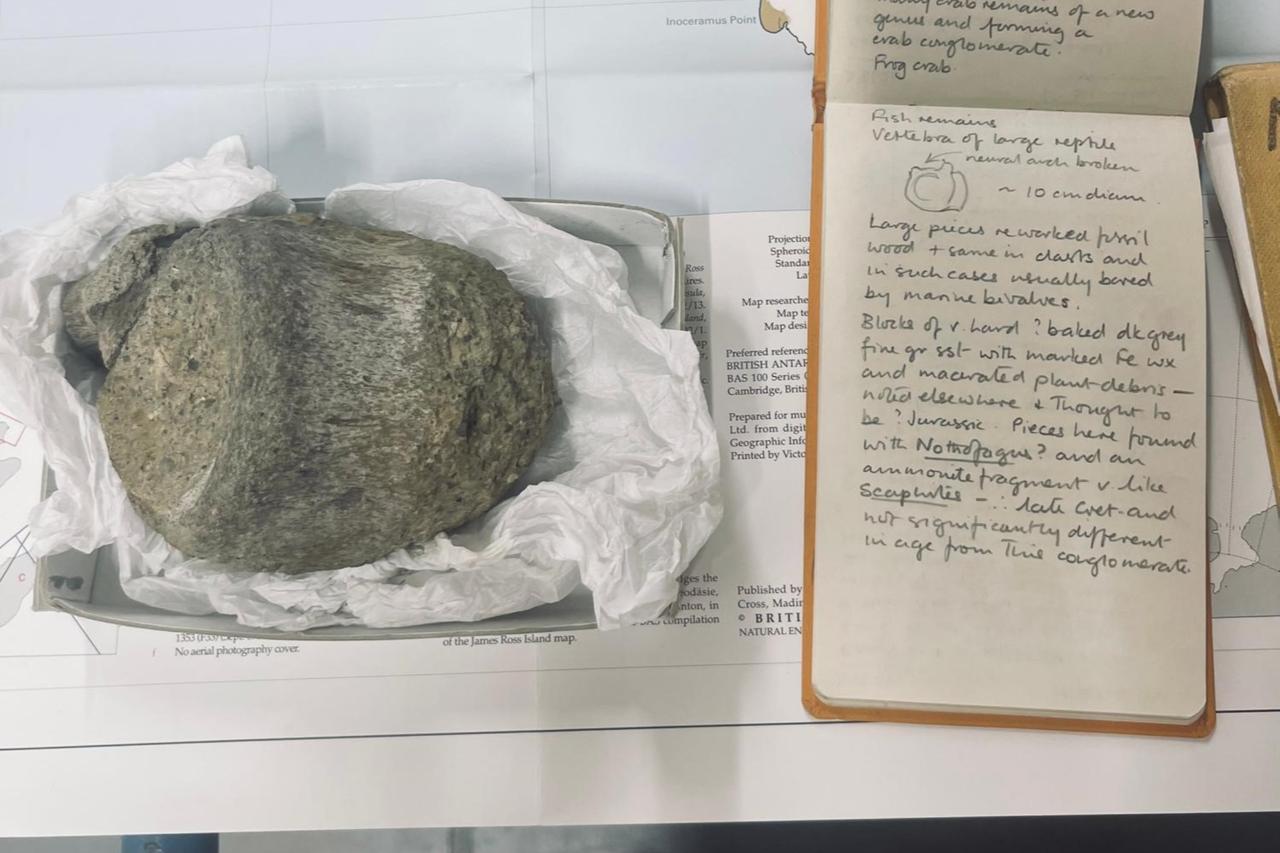 Inoceramus Point
crab remains of a new
genus and forming a
crab conglomerate.
Frog crab.
Fish remains
Vertebra of large reptile
neural arch broken
~ 10 cm diam.
Large pieces reworked fossil
wood + same in clasts and
in such cases usually bored
by marine bivalves.
Blocks of v. hard ? baked dk grey
fine gr sst with marked Fe wx
and macerated plant debris —
noted elsewhere & thought to
be ? Jurassic. Pieces here found
with Nothofagus? and an
ammonite fragment v. like
Scaphites – ∴ late Cret and
not significantly different
in age from this conglomerate.
Ross
Projection
Spheroid
Map
Map
Map
Preferred
BRITISH
BAS 100 Series
Cambridge,
Prepared for
Ltd. from
Geographic
Printed by
the
in
compilation
Published by
Cross,
© BRITI
NATURAL EN
1353
No aerial photography cover.
of the James Ross Island map.
c